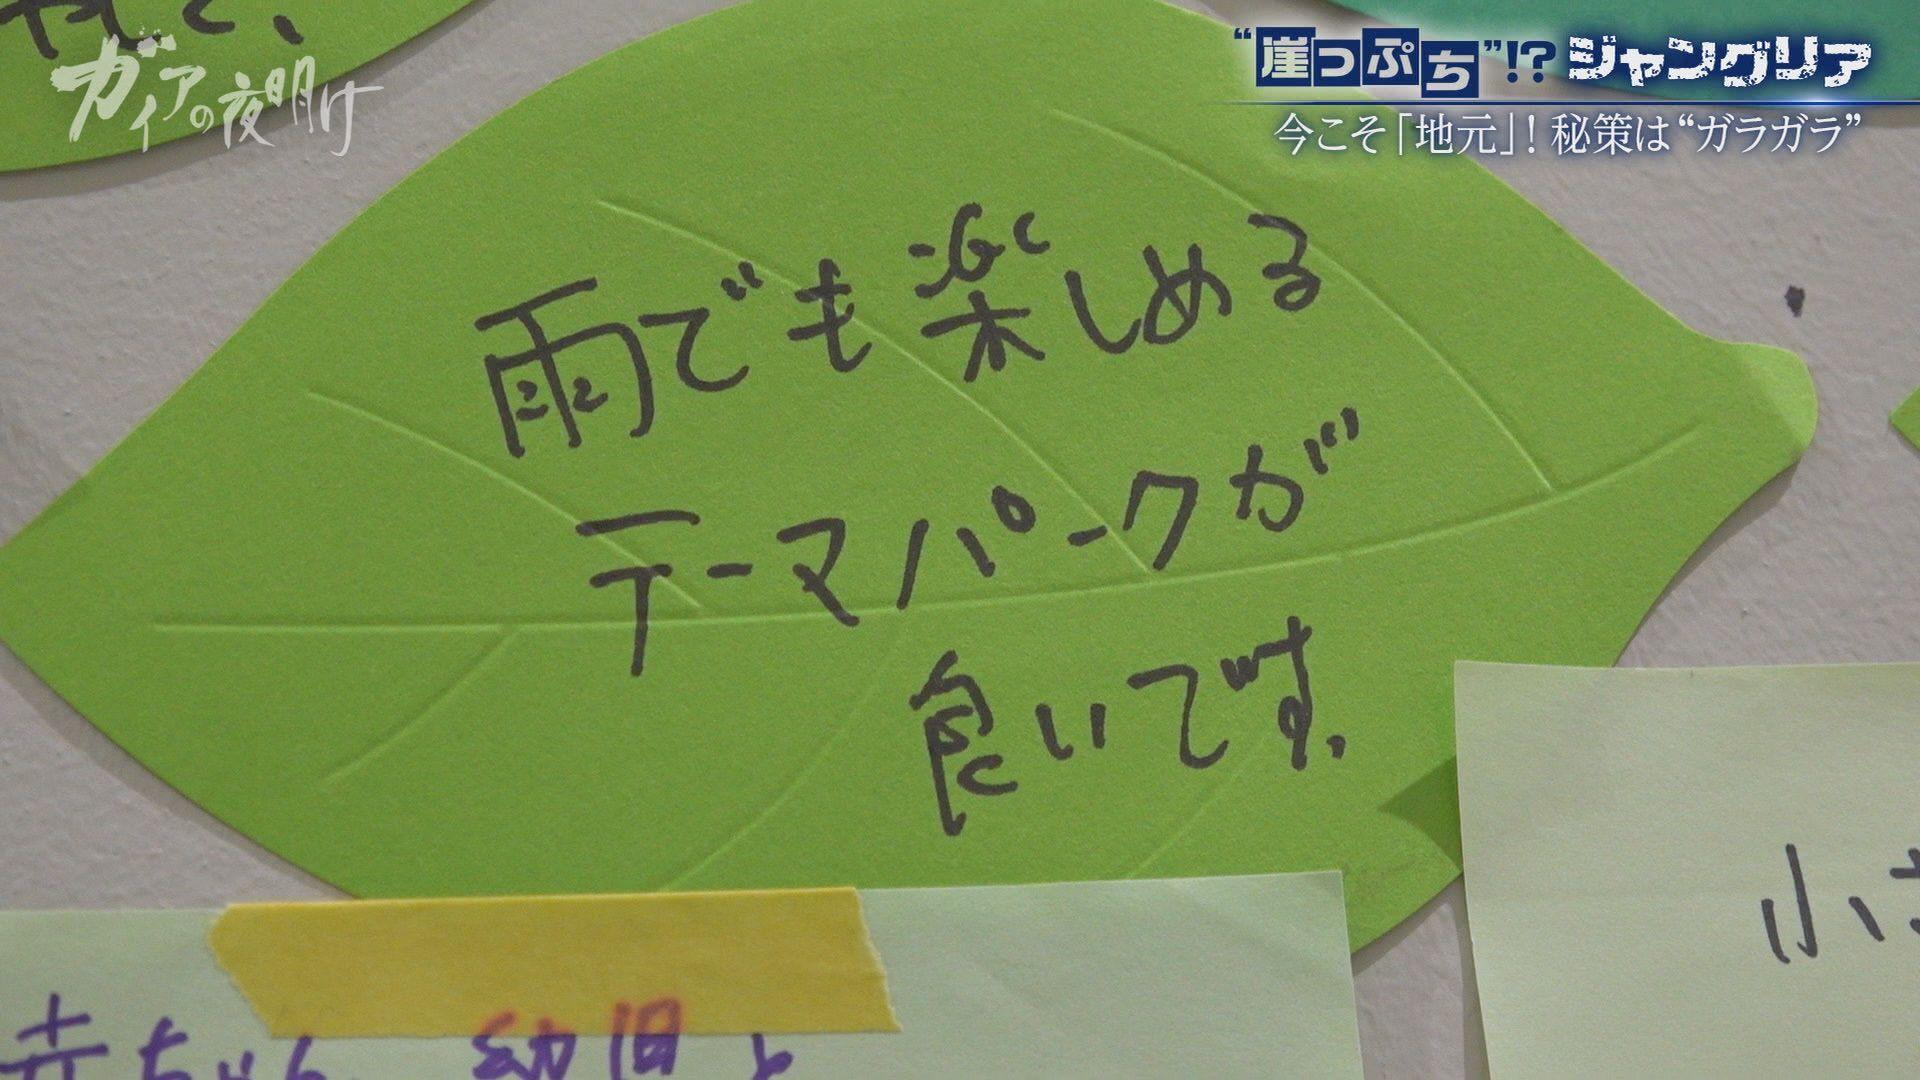 ガイアの夜明け
“崖っぷち”!? ジャングリア
今こそ「地元」！秘策は“ガラガラ”
雨でも楽しめる
テーマパークが
良いです。
赤ちゃん、幼児と